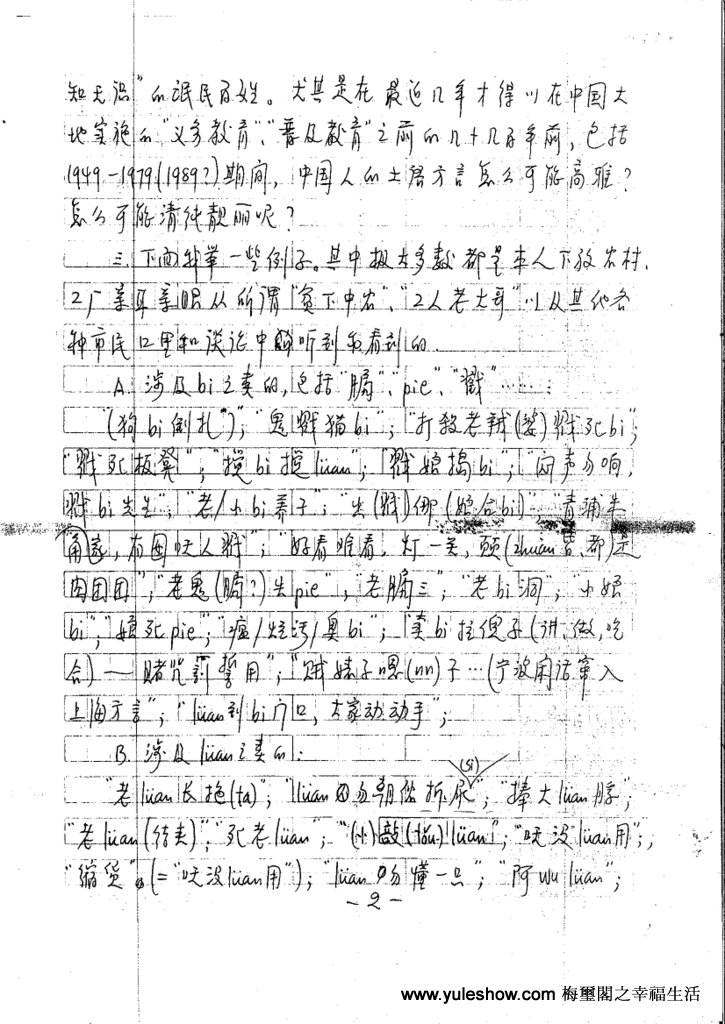 知无识"的泯民百姓。尤其是在最近几年才得以在中国大
地实施的"义务教育"、"普及教育"之前的几十几百年前,包括
1949-1979(1989?)期间,中国人的土语方言怎么可能高雅?
怎么可能清纯靓丽呢?
三、下面我举一些例子。其中极大多数都是本人下放农村、
工厂亲耳亲眼从所谓"贫下中农"、"工人老大哥"以及其他各
种市民口里和谈论中听到和看到的.
A. 涉及bi之类的,包括"膈"、"pie"、"戳"……:
"(狗bi倒扎")";"鬼戳猫bi";"打杀老(婆)戳死bi";
"戳死板凳";"搅bi搅lüan";"戳娘搗bi";"闷声勿响,
戳bi先生";"老/小bi养子";"出(戳)倷(娘合bi)""青浦朱
角家,有囡呒人戳";"好看难看,灯一关,(zhuān 都)是
肉团团";"老鬼(膈?)失pie";"老膈三";"老bi洞";"小娘
bi";"娘死pie";"瘟/烂污/臭bi";"卖bi拉傻子(讲、做、吃
合)——赌咒罚誓用";"贼婊子嗯(nn)子…(宁波闲话窜入
上海方言";"lüan到bi门口,大家动动手";
B. 涉及lüan之类的:
(si)
"老lüan长拖(ta)";"lüan勿朝俗拆尿";"捧大lüan脬";
"老lüan(结夫)";"死老lüan";"(小)敲(tau)lüan";"呒没lüan用";
"缩货"(="呒没lüan用");"lüan勿懂一只";"阿wu lüan";
-2-
www.yuleshow.com 梅璽閣之幸福生活